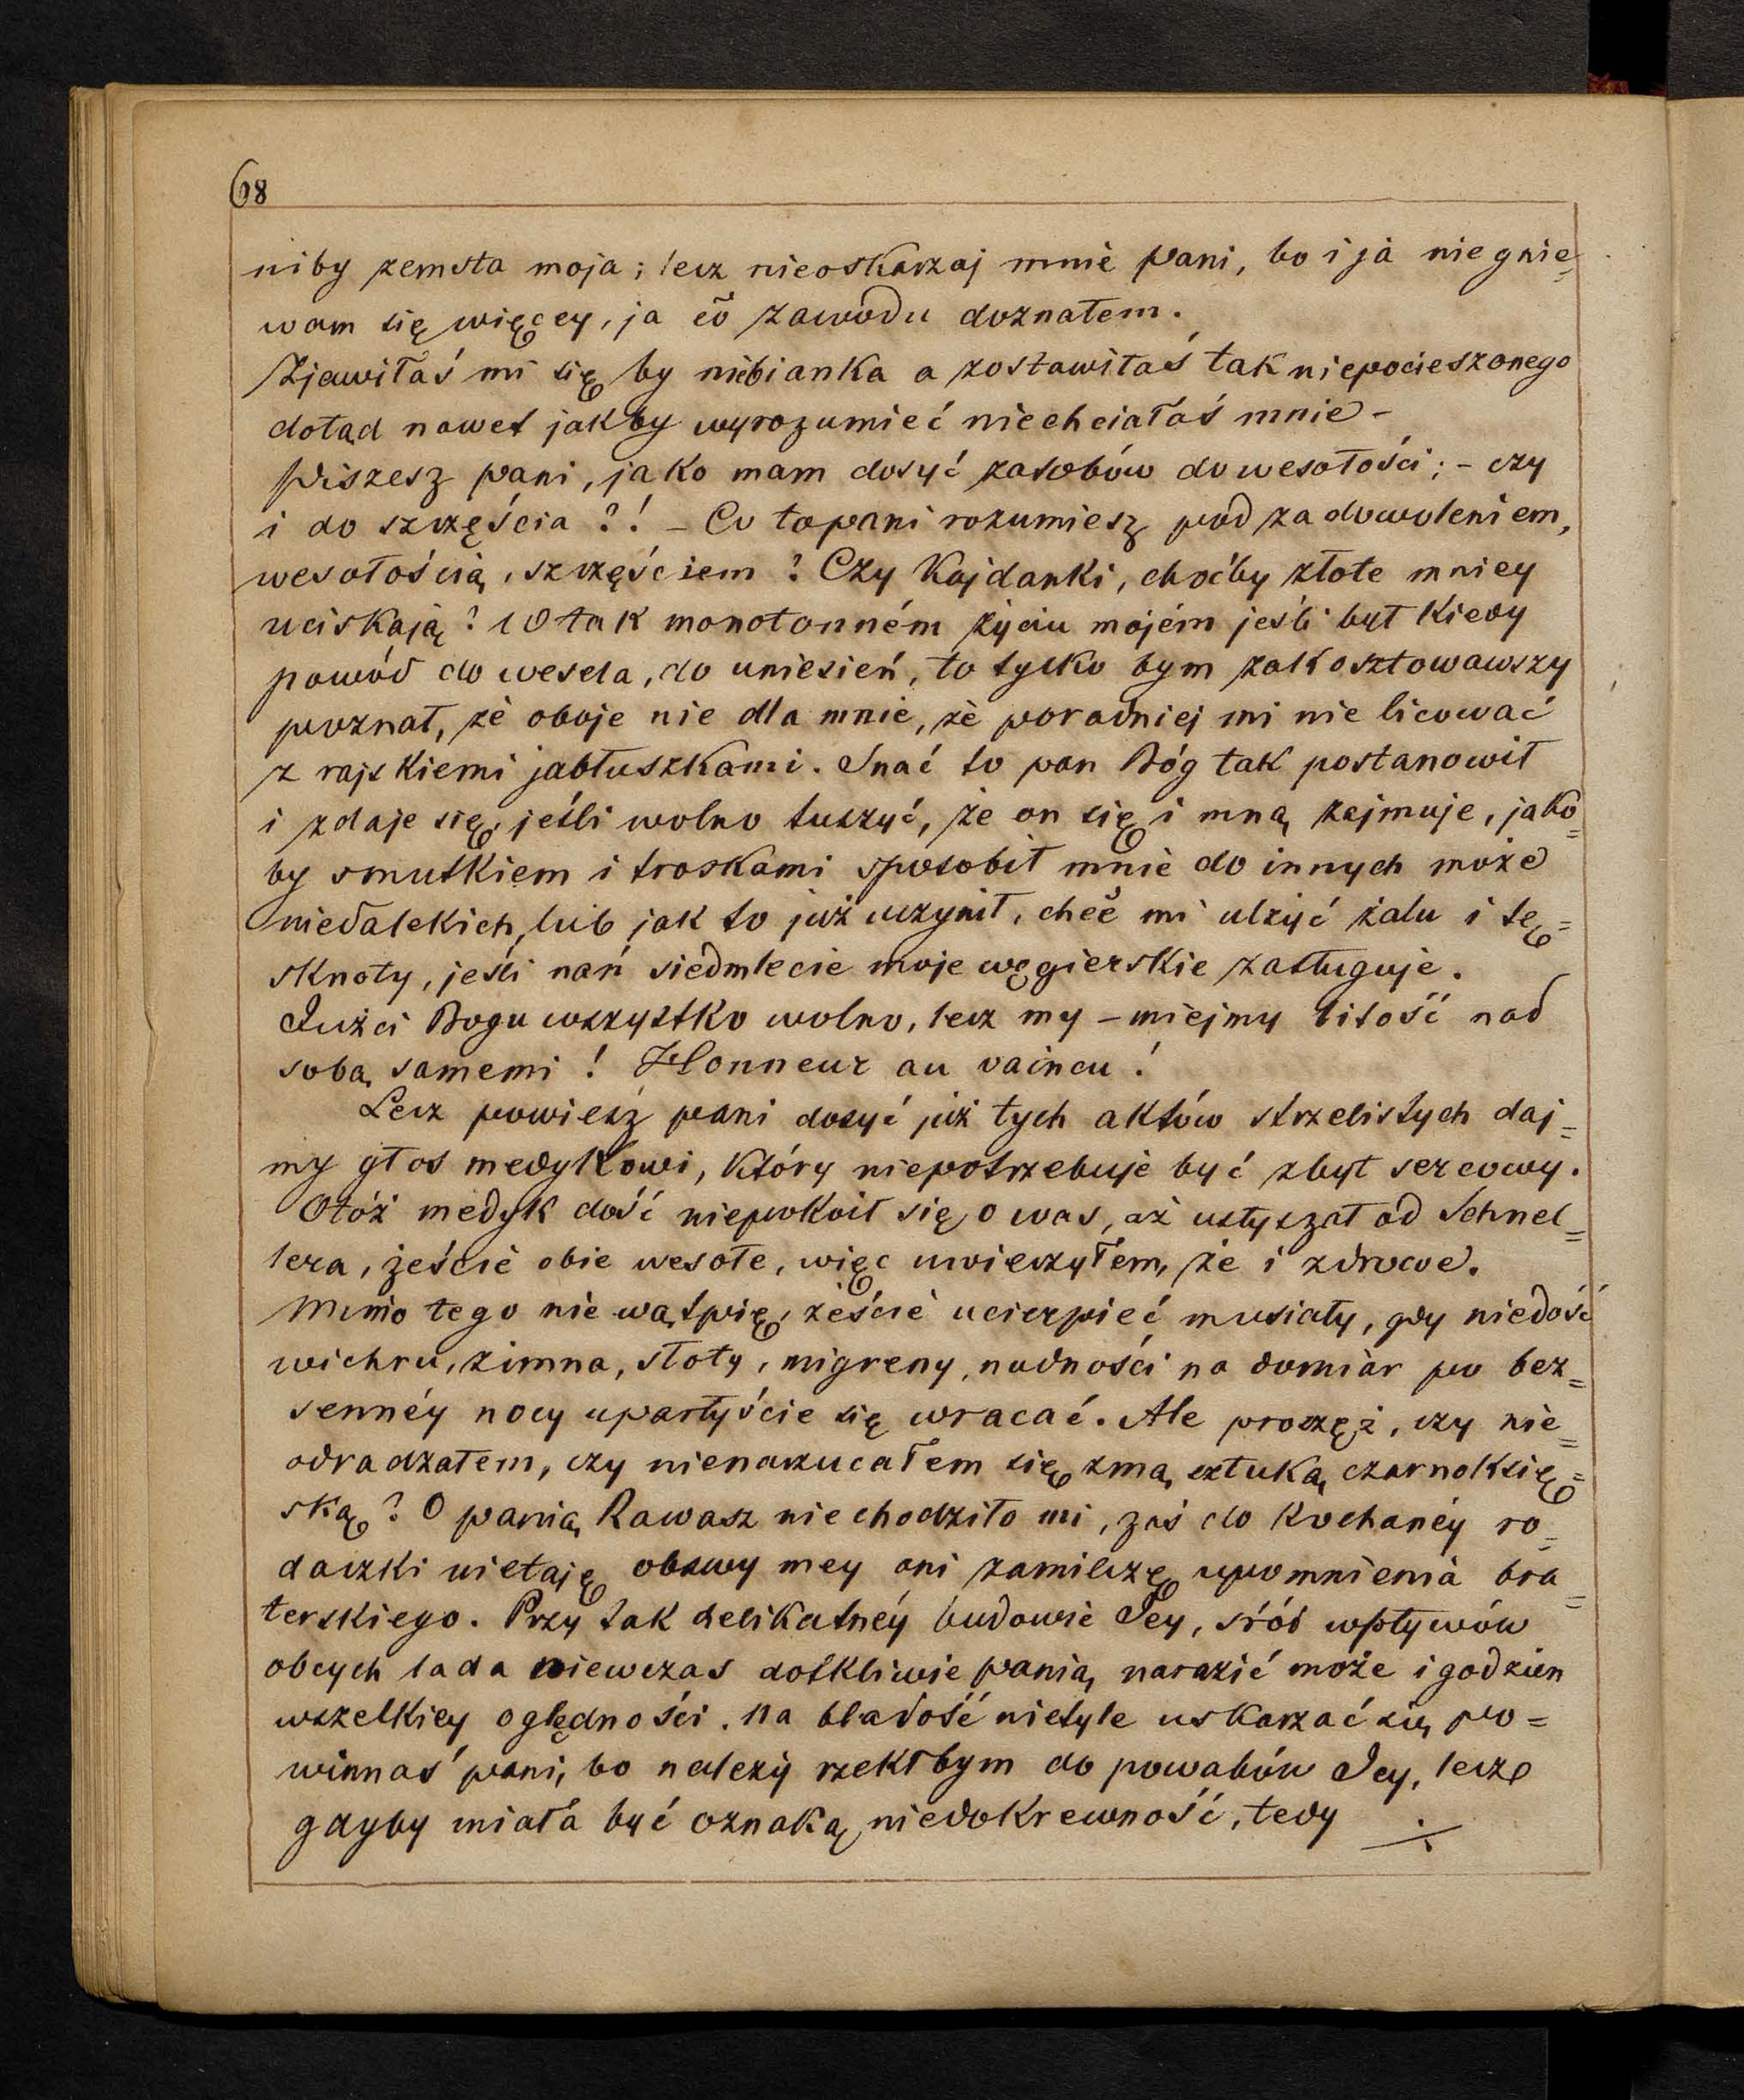 68
niby zemsta moja; lecz nieoskarzaj mnie pani, bo i ja nie gnie=
wam się więcey, ja co zawodu doznałem.
Zjawiłaś mi się by niebianka a zostawiłaś tak niepocieszonego
dotąd nawet jakby wyrozumieć niechciałaś mnie -
Piszesz pani, jako mam dosyć zasobów do wesołości; - czy
i do szczęścia ?! - Co to pani rozumiesz pod zadowoleniem,
wesołością, szczęściem? Czy Kajdanki, choćby złote mniey
uciskają? W tak monotonném życiu mojém jeśli był kiedy
powód do wesela, do uniesień, to tylko bym zakosztowawszy
poznał, że oboje nie dla mnie, że poradniej mi nie licować
z rajskiemi jabłuszkami. Snać to pan Bóg tak postanowił
i zdaje się, jeśli wolno tuszyć, że on się i mną zajmuje, jako=
by smutkiem i troskami sposobił mnie do innych może
niedalekich, lub jak to już uczynił, chcė mi ulżyć żalu i tę=
sknoty, jeśli nań siedmlecie moje węgierskie zasługuje.
Jużci Bogu wszystko wolno, lecz my - miejmy litość nad
sobą samemi! Honneur au vaincu!
Lecz powiesz pani dosyć już tych aktów strzelistych daj=
my głos medykowi, który niepotrzebuje być zbyt sercowy.
Otóż medyk dość niepokoił się o was, aż usłyszał od Schnel=
lera, żeście obie wesołe, więc uwierzyłem, że i zdrowe.
Mimo tego nie wątpię, żeście ucierpieć musiały, gdy niedość
wichru, zimna, słoty, migreny, nudności na domiar po bez=
sennéy nocy uparłyście się wracać. Ale proszęż, czy nie=
odradzałem, czy nienarzucałem się zmą sztuką czarnoksię=
ską? O panią Rawasz nie chodziło mi, zaś do kochanéy ro=
daczki nietaję obawy mey ani zamilczę upomnienia bra=
terskiego. Przy tak delikatnéy budowie Jey, śród wpływów
obcych lada niewczas dotkliwie panią narazić może i godzien
wszelkiey oględności. Na bladość nietyle uskarzać się po=
winnaś pani, bo należy rzekłbym do powabów Jey, lecz
gdyby miała być oznaką niedokrewność, tedy ./.